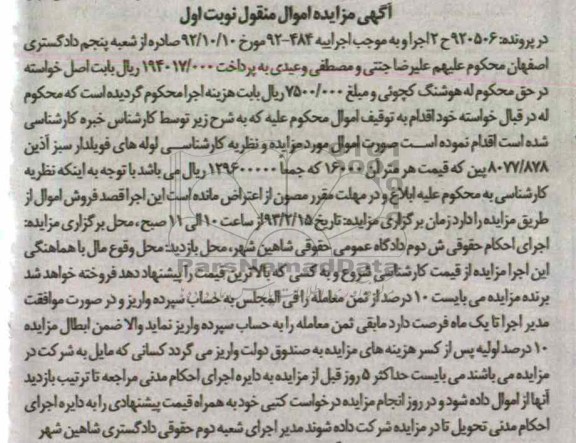 آگهی مزایده اموال منقول نوبت اول
در پرونده: ۹۲۰۵۰۶ح ۲ اجرا و به موجب اجراییه ۴۸۴-۹۲مورخ ۹۲/۱۰/۱۰ صادره از شعبه پنجم دادگستری
اصفهان محکوم علیهم علیرضا جنتی و مصطفی وعیدی به پرداخت ۱۹۴۰۱۷/۰۰۰ ریال بابت اصل خواسته
در حق محکوم له هوشنگ کچوئی و مبلغ ۷۵۰۰/۰۰۰ ریال بابت هزینه اجرا محکوم گردیده است که محکوم
له در قبال خواسته خود اقدام به توقیف اموال محکوم علیه که به شرح زیر توسط کارشناس خبره کارشناسی
شده است اقدام نموده است صورت اموال مورد مزایده و نظریه کارشناسی لوله های فویلدار سبز آذین
۸۰۷۷/۸۷۸ پین که قیمت هر متر آن ۱۶۰۰۰ که جمعا ۱۲۹۶۰۰۰۰۰ ریال می باشد با توجه به اینکه نظریه
کارشناسی به محکوم علیه ابلاغ و در مهلت مقرر مصون از اعتراض مانده است این اجرا قصد فروش اموال از
طریق مزایده را دارد زمان برگزاری مزایده: تاریخ ۹۳/۲/۱۵از ساعت ۱۰ الی ۱۱ صبح ، محل برگزاری مزایده:
اجرای احکام حقوقی ش دوم دادگاه عمومی حقوقی شاهین شهر، محل بازدید: محل وقوع مال با هماهنگی
این اجرا مزایده از قیمت کارشناسی شروع و به کسی که بالاترین قیمت را پیشنهاد دهد فروخته خواهد شد
ParsNamadData
برنده مزایده می بایست ۱۰ درصد از ثمن معامله را فی المجلس به حساب سپرده واریز و در صورت موافقت
مدیر اجرا تا یک ماه فرصت دارد مابقی ثمن معامله را به حساب سپرده واریز نماید والا ضمن ابطال مزایده
۱۰ درصد اولیه پس از کسر هزینه های مزایده به صندوق دولت واریز می گردد کسانی که مایل به شرکت در
مزایده می باشند می بایست حداکثر ۵ روز قبل از مزایده به دایره اجرای احکام مدنی مراجعه تا ترتیب بازدید
آنها از اموال داده شود و در روز انجام مزایده درخواست کتبی خود به همراه قیمت پیشنهادی را به دایره اجرای
احکام مدنی تحویل تا در مزایده شرکت داده شوند مدیر اجرای شعبه دوم حقوقی دادگستری شاهین شهر